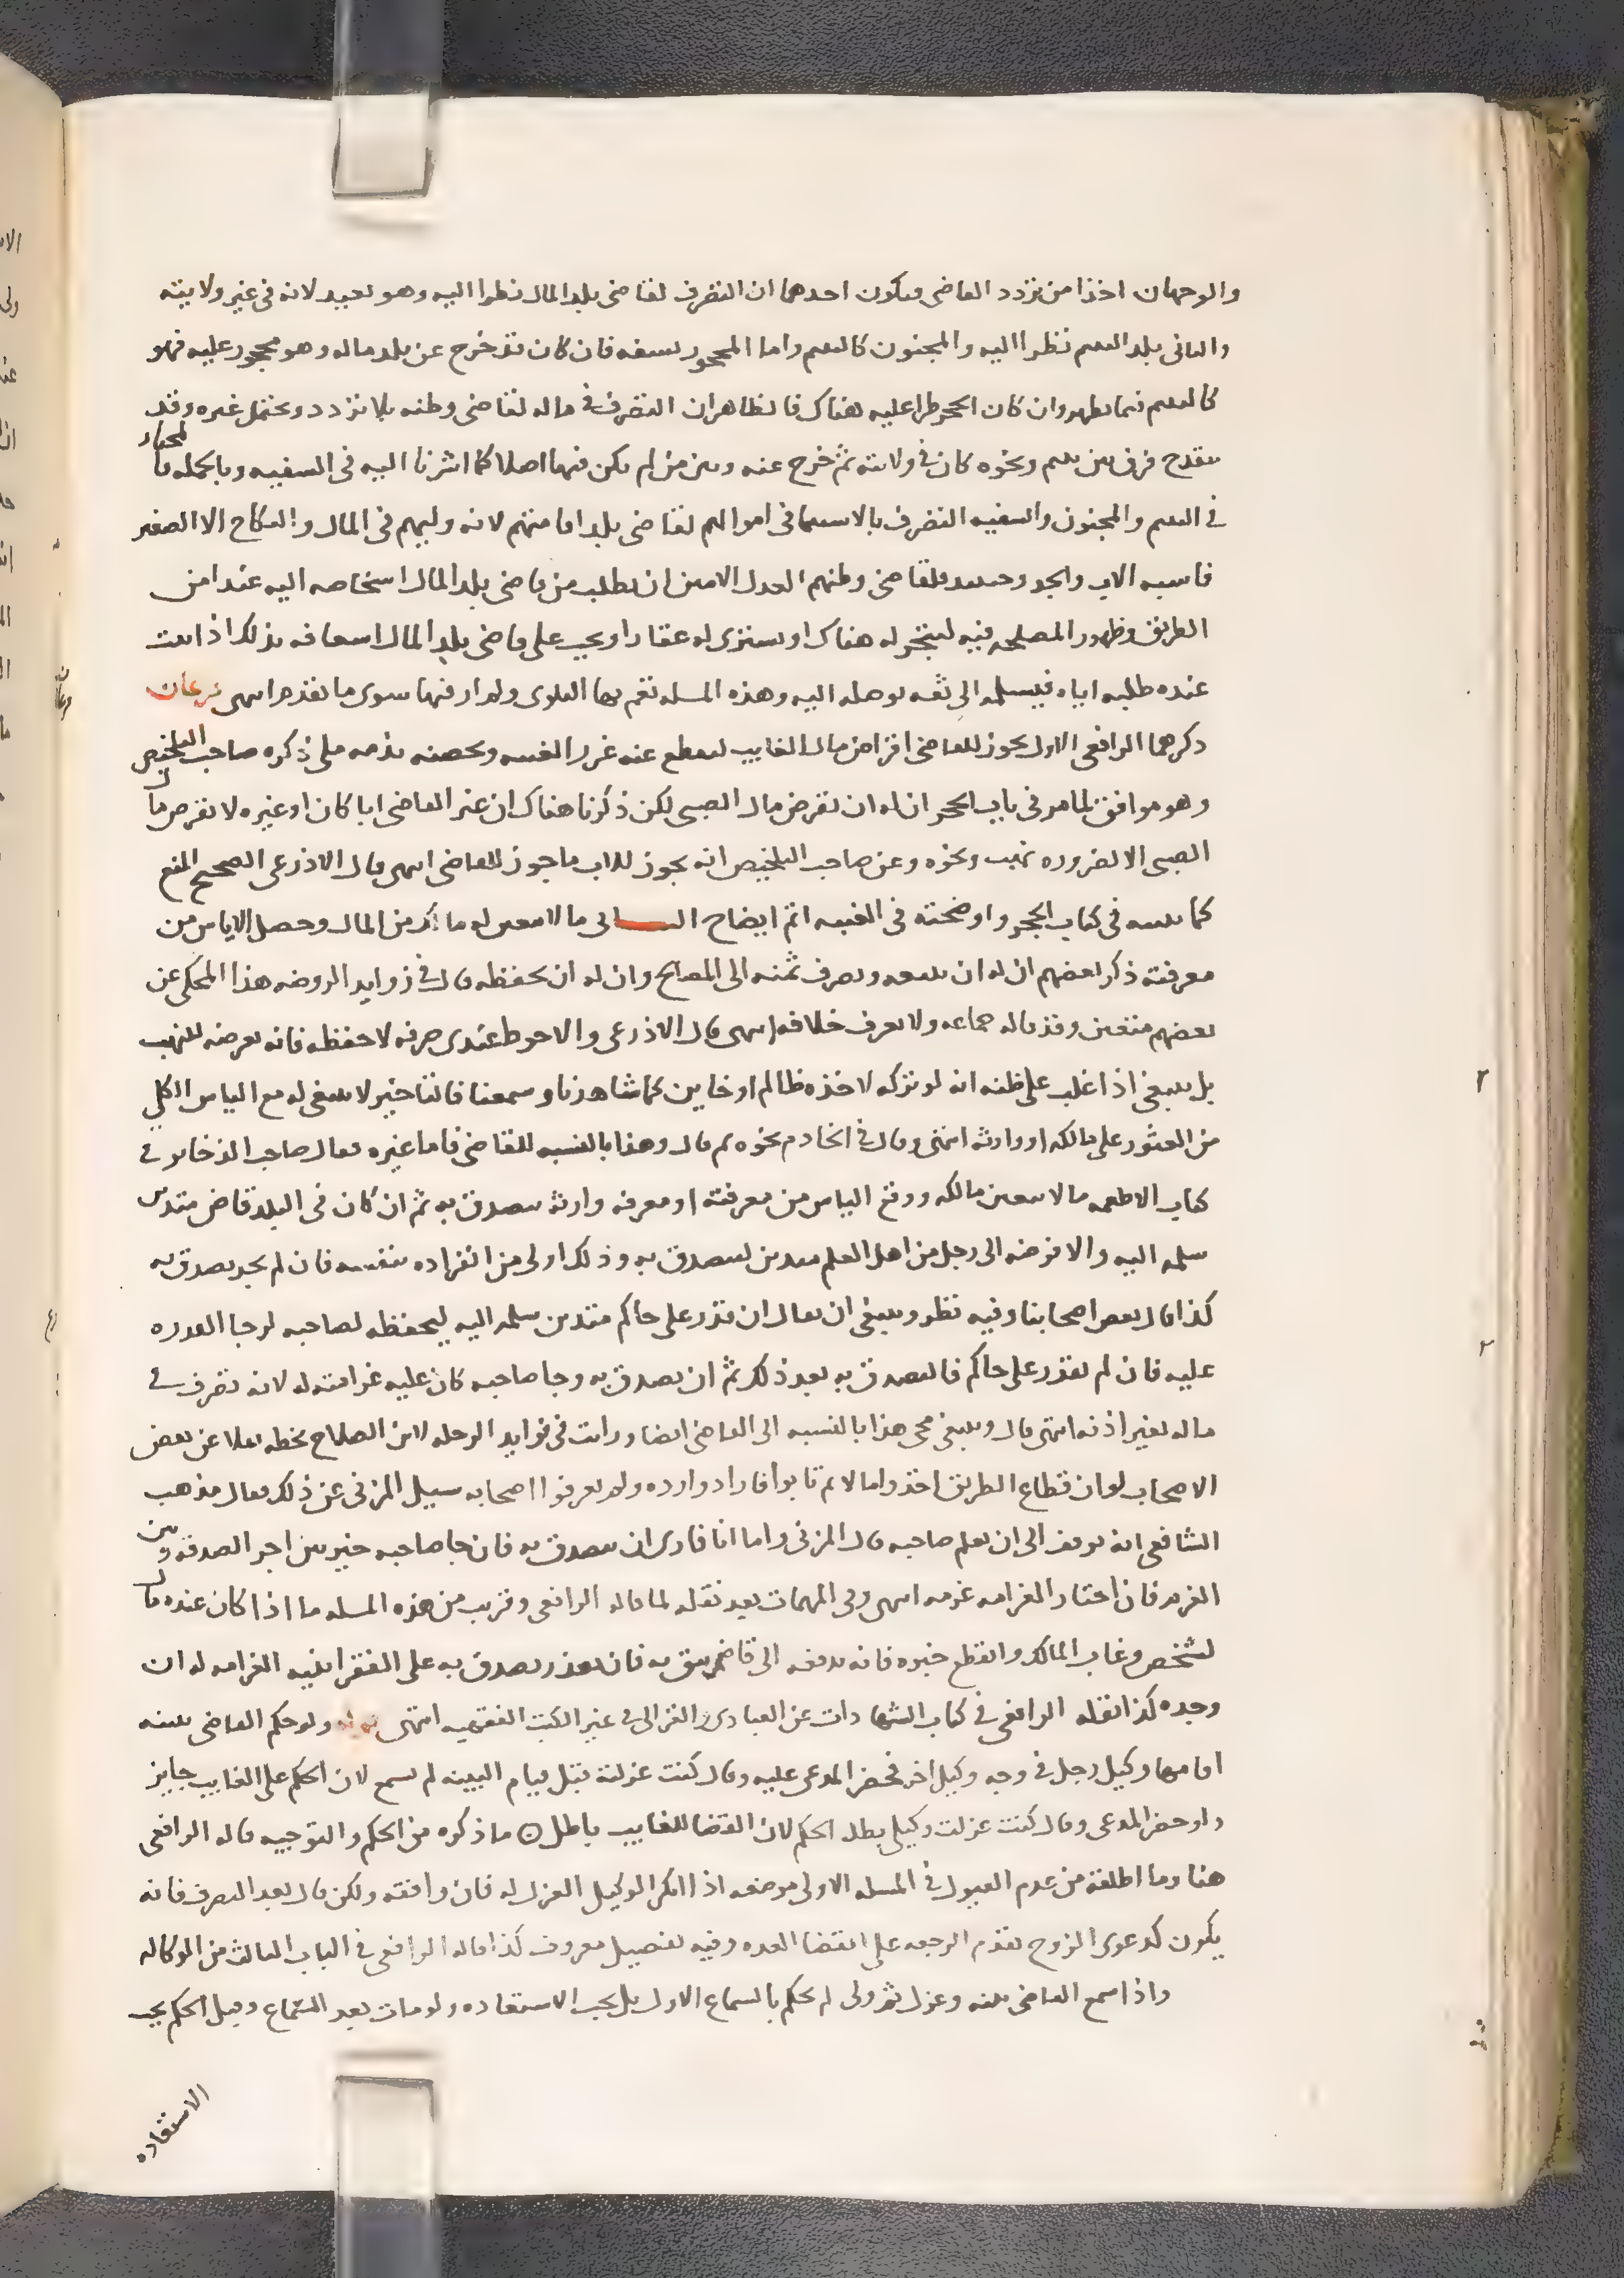 والوجهان اخذا من تردد القاضى ويكون احدهما ان التصرف لقاضى بلد المال نظرا اليه وهو بعيد لانه فى غير ولايته
والثانى بلد اليتيم نظرا اليه والمجنون كاليتيم واما المحجور بسفه فان كان قد خرج عن بلد ماله وهو محجور عليه فهو
كاليتيم فيما يظهر وان كان الحجر طرا عليه هناك فالظاهر ان التصرف فى ماله لقاضى وطنه بلا تردد ويحتمل غيره وقد
ينقدح فرق بين يتيم ونحوه كان فى ولايته ثم خرج عنه وبين من لم يكن فيها اصلا كما اشرنا اليه فى السفيه وبالجملة فالمختار
فى اليتيم والمجنون والسفيه التصرف بالاستنما فى اموالهم لقاضى بلد اقامتهم لانه وليهم فى المال والنكاح الا الصغير
فاشبه الاب والجد وحينئذ فلقاضى وطنهم العدل الامين ان يطلب من قاضى بلد المال اشخاصه اليه عند امن
الطريق وظهور المصلحه فيه ليتجر له هناك او يشترى له عقارا ويجب على قاضى بلد المال اسعافه بذلك اذا ثبت
عنده طلبه اياه فيسلمه الى ثقه يوصله اليه وهذه المسله تعم بها البلوى ولم ار فيها سوى ما تقدم انتهى فرعان
ذكرهما الرافعى الاول يجوز للقاضى اقراض مال الغايب ليقطع عنه غرر الغيبه ويحصنه بذمه ملى ذكره صاحب التلخيص
وهو موافق لما مر فى باب الحجر ان له ان يقرض مال الصبى لكن ذكرنا هناك ان غير القاضى ابا كان او غيره لا يقرض مال
الصبى الا لضروره نهب ونحوه وعن صاحب التلخيص انه يجوز للاب ما جوز للقاضى انتهى قال الاذرعى الصحيح المنع
كما بينته فى كتاب الحجر واوضحته فى الغنيه اتم ايضاح الثــانى ما لا يتعين له مالك من المال وحصل الاياس من
معرفته ذكر بعضهم ان له ان يبيعه ويصرف ثمنه الى المصالح وان له ان يحفظه قال فى زوايد الروضه هذا المحكى عن
بعضهم متعين وقد قاله جماعه ولا يعرف خلافه انتهى قال الاذرعى والاحوط عندى صرفه لا حفظه فانه يعرضه للنهب
بل ينبغى اذا غلب على ظنه انه لو تركه لاخذه ظالم او خاين كما شاهدنا وسمعنا فالتاخير لا ينبغى له مع الياس الكلى
من العثور على مالكه او وارثه انتهى وقال فى الخادم نحوه ثم قال وهذا بالنسبه للقاضى فاما غيره فقال صاحب الذخاير فى
كتاب الاطعمه ما لا يتعين مالكه ووقع الياس من معرفته او معرفه وارثه يتصدق به ثم ان كان فى البلد قاض متدين
سلمه اليه والا فوضه الى رجل من اهل العلم متدين ليتصدق به وذلك اولى من انفراده بنفسه فان لم يجد تصدق به
كذا قال بعض اصحابنا وفيه نظر وينبغى ان يقال ان قدر على حاكم متدين سلمه اليه ليحفظه لصاحبه لرجا القدره
عليه فان لم يقدر على حاكم فالتصدق به بعد ذلك ثم ان تصدق به وجا صاحبه كان عليه غرامته له لانه تصرف فى
ماله بغير اذنه انتهى قال وينبغى مجى هذا بالنسبه الى القاضى ايضا ورايت فى فوايد الرحله لابن الصلاح بخطه نقلا عن بعض
الاصحاب لو ان قطاع الطريق اخذوا مالا ثم تابوا فارادوا رده ولم يعرفوا اصحابه سيل المزنى عن ذلك فقال مذهب
الشافعى انه يوقف الى ان يعلم صاحبه قال المزنى واما انا فارى ان يتصدق به فان جا صاحبه خير بين اجر الصدقه وبين
الغرم فان اختار الغرامه غرمه انتهى وفى المهمات بعد نقله لما قاله الرافعى وقريب من هذه المسله ما اذا كان عنده مال
لشخص وغاب المالك وانقطع خبره فانه يدفعه الى قاض يثق به فان تعذر تصدق به على الفقرا بنيه الغرامه له ان
وجده كذا نقله الرافعى فى كتاب الشهادات عن العبادى والغزالى فى غير الكتب الفقهيه انتهى قوله ولو حكم القاضى ببينه
اقامها وكيل رجل فى وجه وكيل اخر فحضر المدعى عليه وقال كنت عزلته قبل قيام البينه لم يسمع لان الحكم على الغايب جايز
ولو حضر المدعى وقال كنت عزلت وكيلى بطل الحكم لان القضا للغايب باطل ۞ ما ذكره من الحكم والتوجيه قاله الرافعى
هنا وما اطلقه من عدم القبول فى المسله الاولى موضعه اذا انكر الوكيل العزل له فان وافقه ولكن قال بعد التصرف فانه
يكون كدعوى الزوج تقدم الرجعه على انقضا العده وفيه تفصيل معروف كذا قاله الرافعى فى الباب الثالث من الوكاله
واذا سمع القاضى بينه وعزل ثم ولى لم يحكم بالسماع الاول بل يجب الاستعاده ولو مات بعد السماع وقبل الحكم يجب
الاستعاده